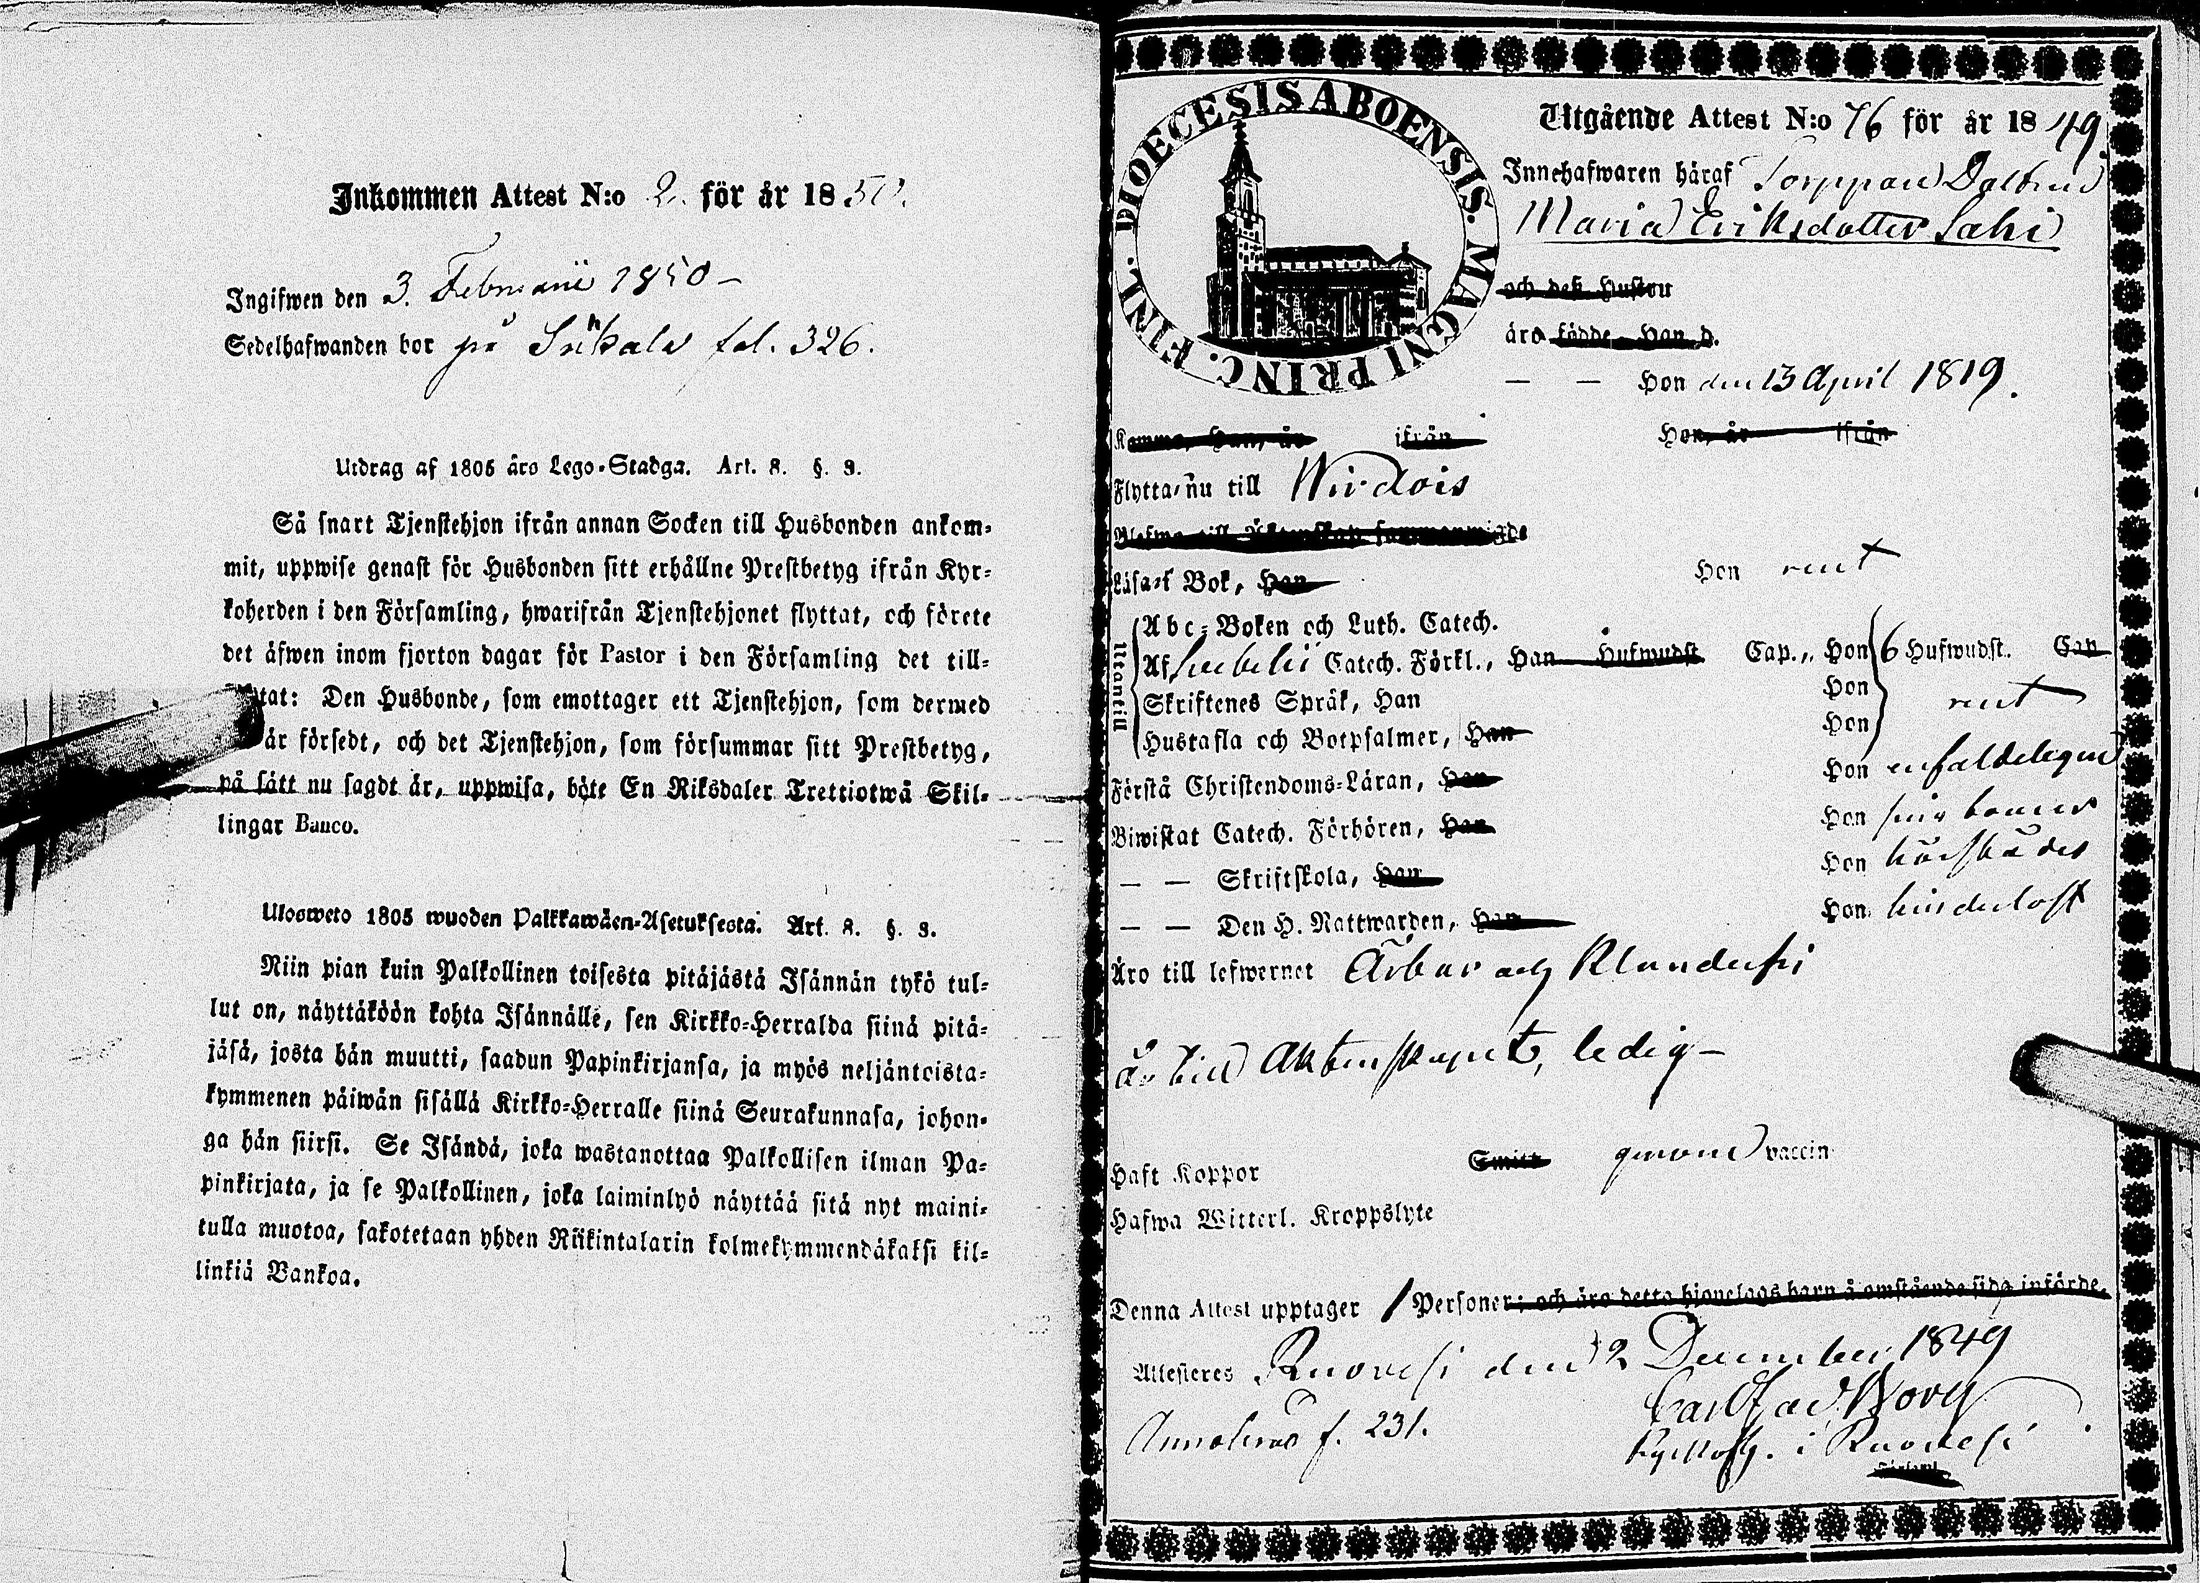 Inkommen Attest N:o 2. för år 1850.
Ingifwen den 3. Februarii 1850 –
Sedelhafwanden bor på fol. 326.
Utdrag af 1805 års Lego-Stadga. Art. 8. §. 3.
Så snart Tjenstehjon ifrån annan Socken till Husbonden ankom-
mit, uppwise genast för Husbonden sitt erhållne Prestbetyg ifrån Kyr-
koherden i den Församling, hwarifrån Tjenstehjonet flyttat, och förete
det äfwen inom fjorton dagar för Pastor i den Församling det till-
tat: Den Husbonde, som emottager ett Tjenstehjon, som dermed
är försedt, och det Tjenstehjon, som försummar sitt Prestbetyg,
på sått nu sagdt är, uppwisa, böte En Riksdaler Trettiotwå Skil-
lingar Banco.
Ulosweto 1805 wuoden Palkkawäen-Asetuksesta. Art. 8. §. 3.
Niin pian kuin Palkollinen toisesta pitäjästä Isännän tykö tul-
lut on, näyttäköön kohta Isännälle, sen Kirkko-Herralda siinä pitä-
jäsä, josta hän muutti, saadun Papinkirjansa, ja myös neljäntoista-
kymmenen päiwän sisällä Kirkko-Herralle siinä Seurakunnasa, johon-
ga hän siirsi. Se Isändä, joka wastanottaa Palkollisen ilman Pa-
pinkirjata, ja se Palkollinen, joka laiminlyö näyttää sitä nyt maini-
tulla muotoa, sakotetaan yhden Riikintalarin kolmekymmendäkaksi kil-
linkiä Bankoa.
DIOECESIS ABOENSIS. MAGNI PRINC. FINL.
Utgående Attest N:o 76 för år 1849.
Innehafwaren häraf Torppare Dottren
Maria Eriksdotter Sahi
och deß Hustru
äro födde Han d.
— — Hon den 13 April 1819.
Komme, Han, år ifrån Hon, år ifrån
Flytta nu till Wirdois
Blefwo till Äktenskap sammanwigde
Läsa i Bok, Han Hon rent
Utantill
Abc-Boken och Luth. Catech.
Af Svebelii Catech. Förkl., Han Hufwudst. Cap., Hon 6 Hufwudst. Cap
Skriftenes Språk, Han Hon rent
Hustafla och Botpsalmer, Han Hon
Förstå Christendoms-Läran, Han Hon enfaldeligen
Biwistat Catech. Förhören, Han Hon
— — Skriftskola, Han Hon
— — Den H. Nattwarden, Han Hon hinderlöst
Äro till lefwernet Ärbar och
är till Äktenskapet, ledig –
Haft Koppor Smitt genom vaccin
Hafwa Witterl. Kroppslyte
Denna Attest upptager 1 Personer; och äro detta hjonelags barn å omstående sida införde.
Attesteres Ruovesi den 2 December 1849
f. 231.
i Ruovesi